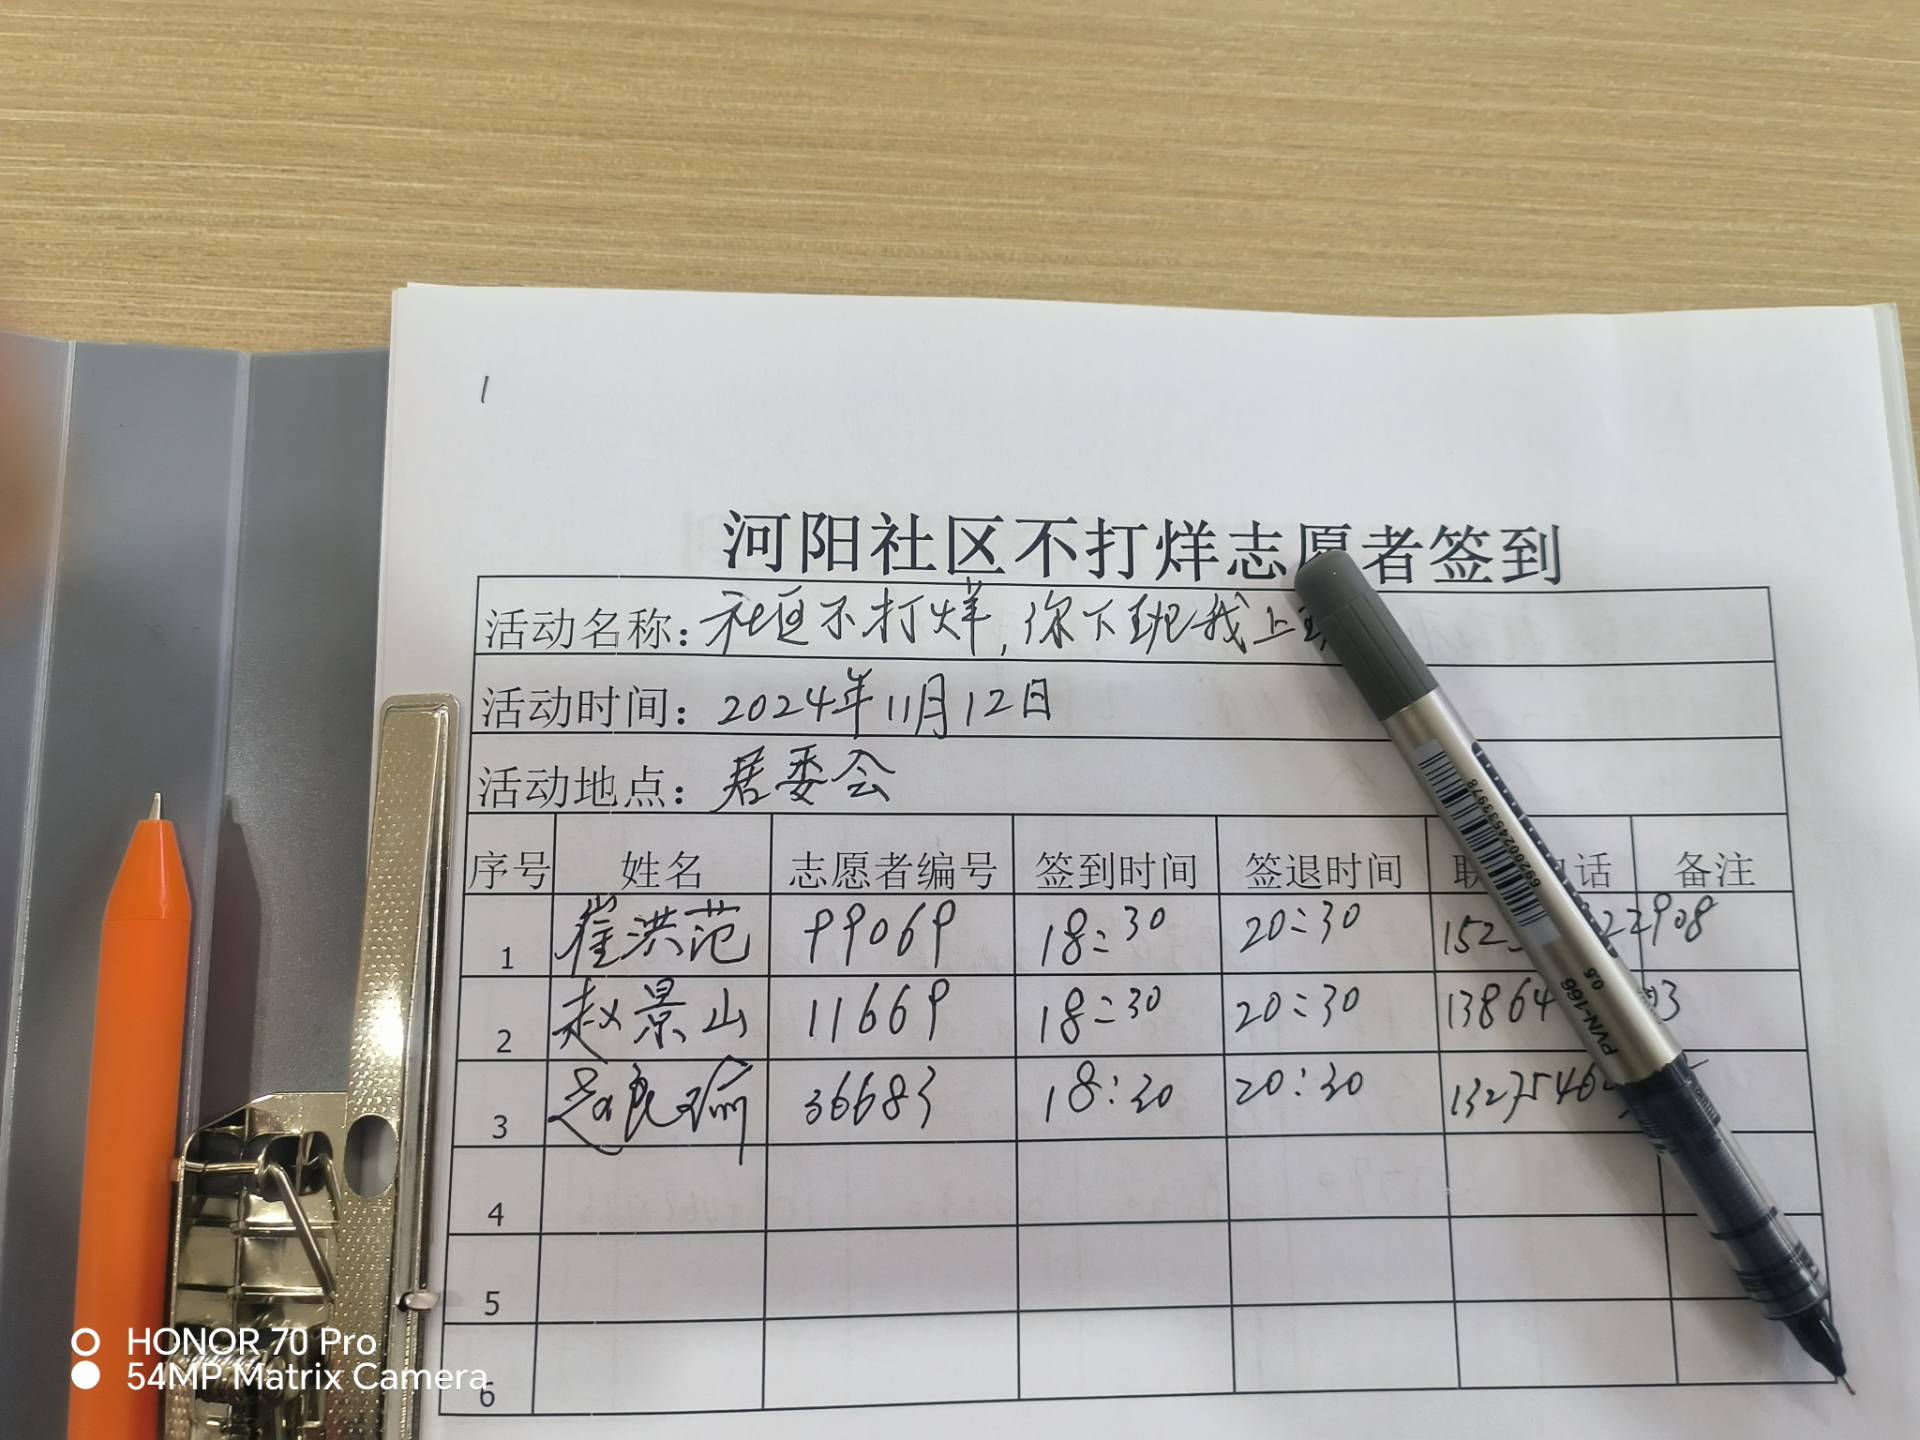 1
河阳社区不打烊志愿者签到
活动名称：社区不打烊，你下班我上班
活动时间：2024年11月12日
活动地点：居委会
序号 姓名 志愿者编号 签到时间 签退时间 联 话 备注
1 崔洪范 99069 18:30 20:30 152 22908
2 赵景山 11669 18:30 20:30 13864 03
3 赵 瑜 36683 18:30 20:30 1327546
4
5
6
6920024533978
PVN-166
0.5
HONOR 70 Pro
54MP Matrix Camera